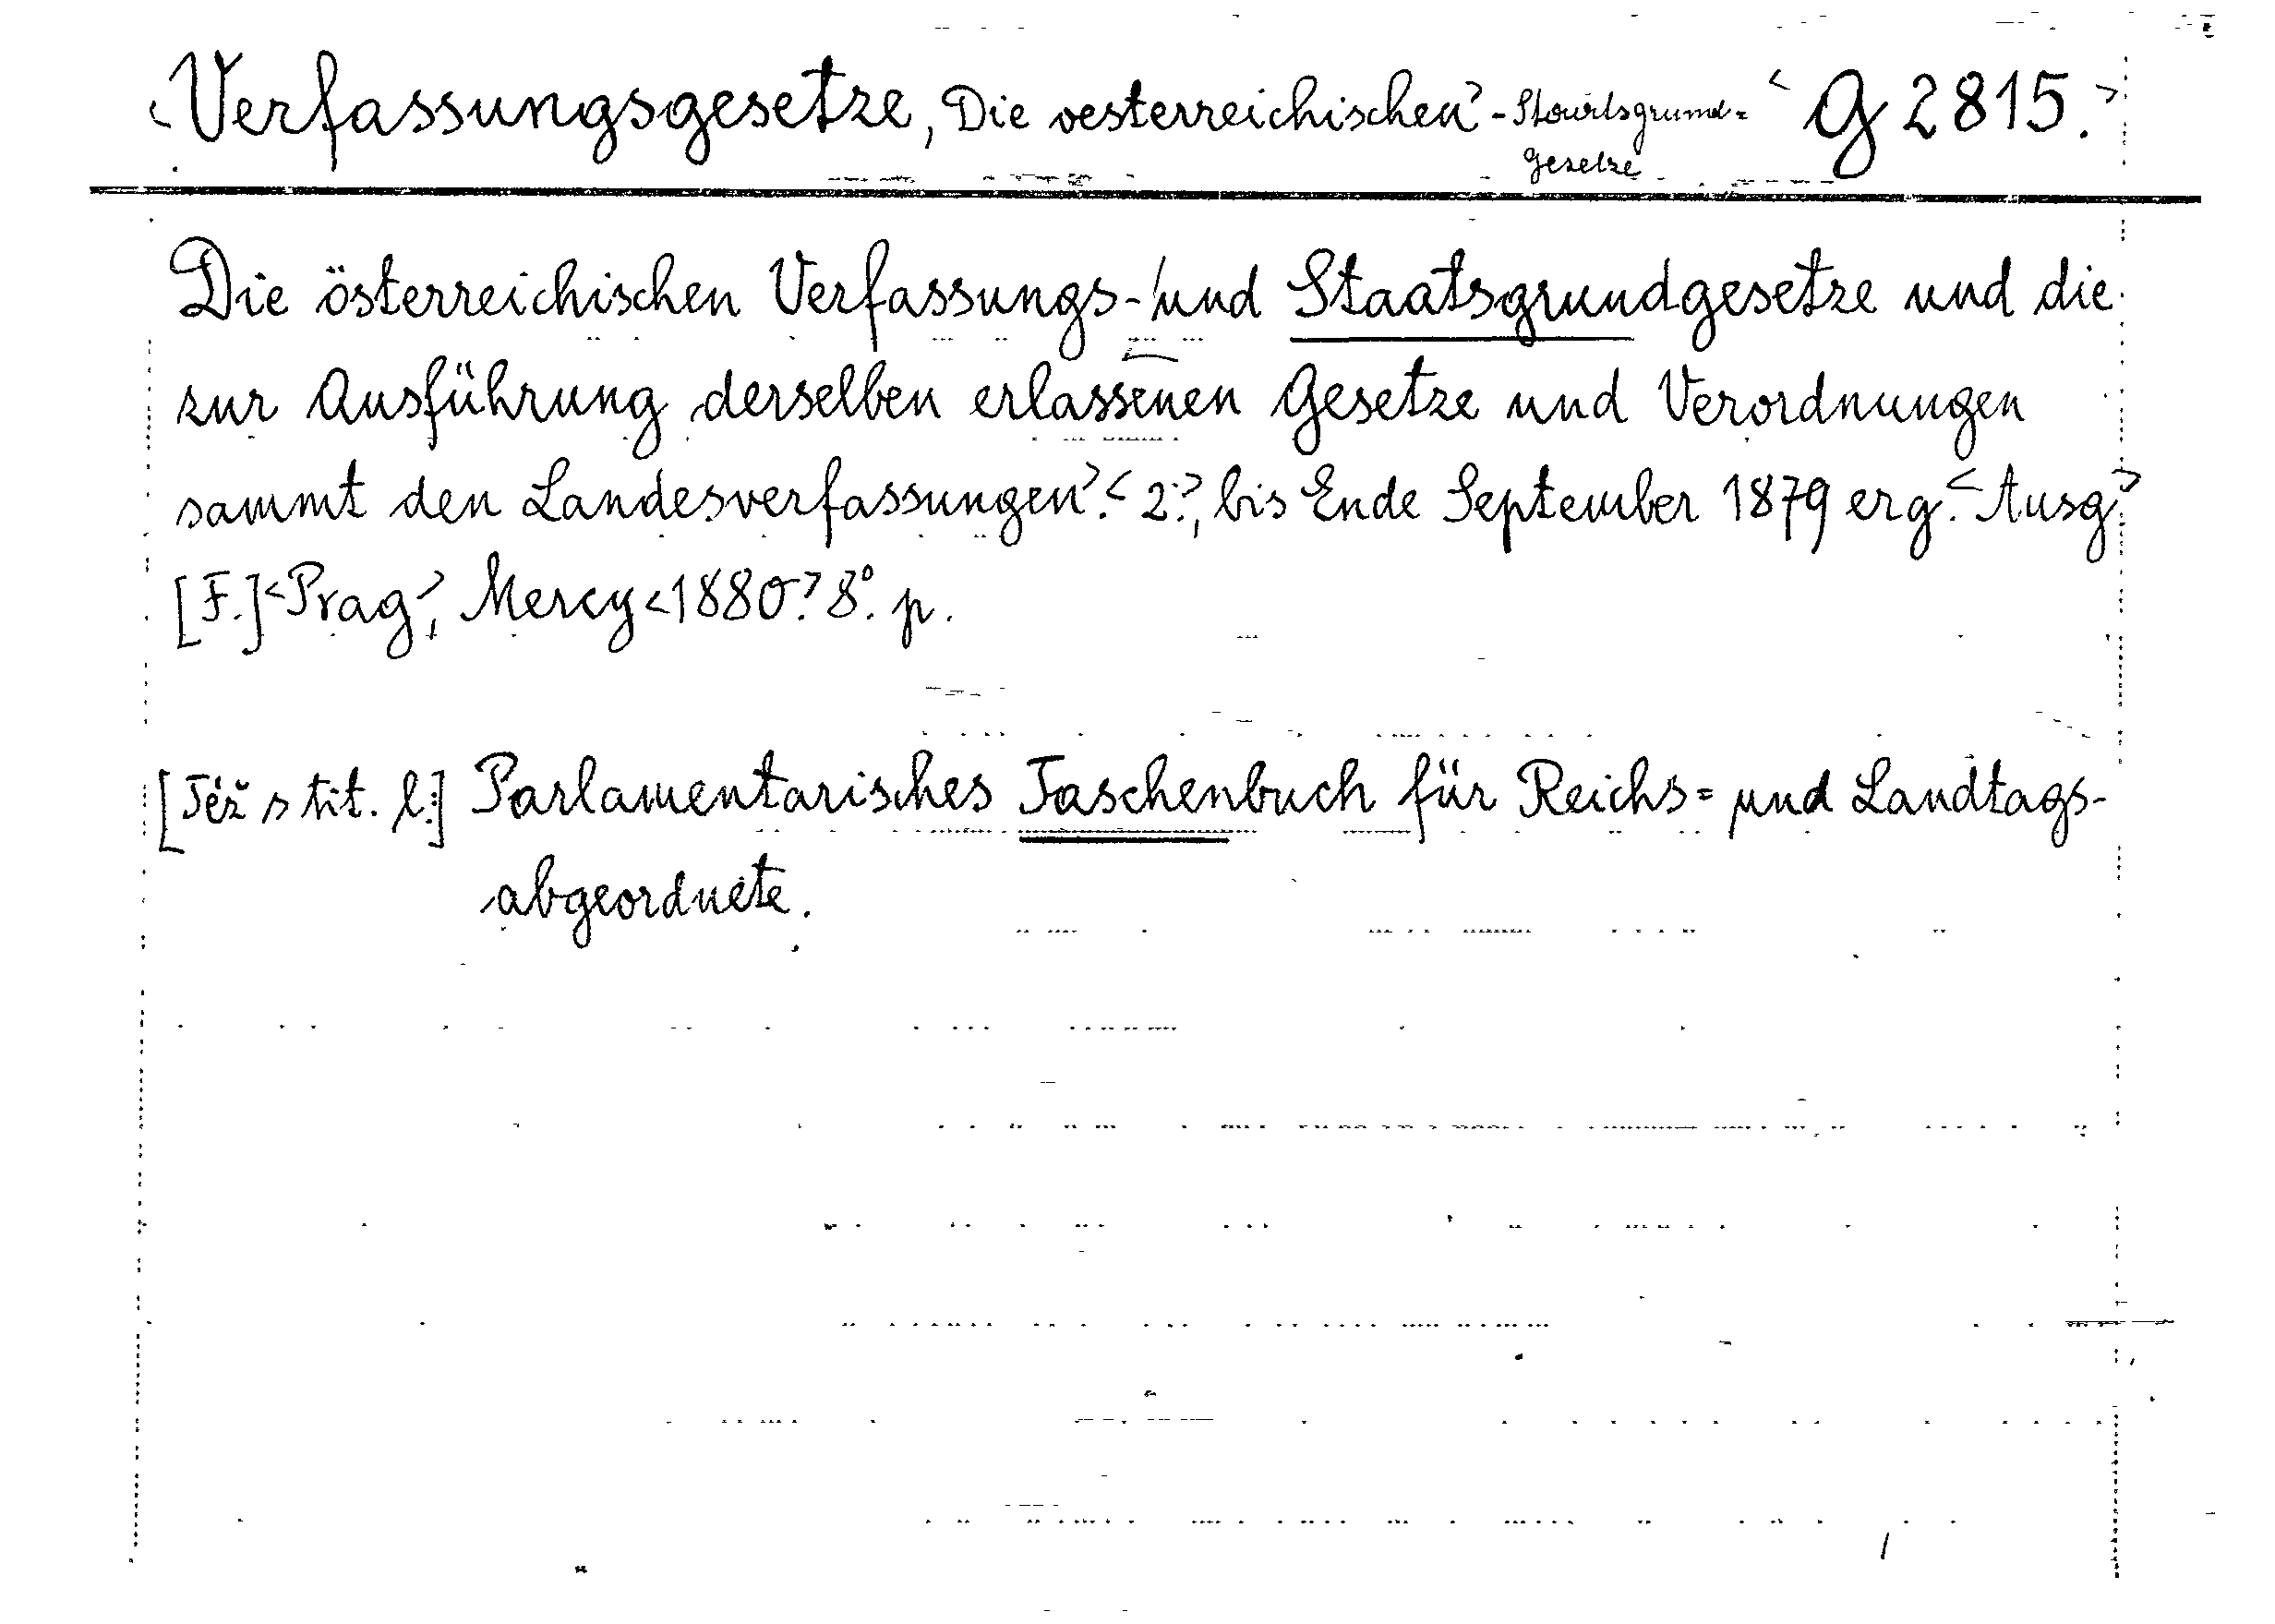 <Verfassungsgesetze, Die oesterreichischen> - Staatsgrund= <G 2815.>
gesetze
Die österreichischen Verfassungs- und Staatsgrundgesetze und die
zur Ausführung derselben erlassenen Gesetze und Verordnungen
sammt den Landesverfassungen>. <2.>, bis Ende September 1879 erg. <Ausg.>
[F.] <Prag>, Mercy <1880>. 8°. p.
[Též s tit. l.:] Parlamentarisches Taschenbuch für Reichs= und Landtags-
abgeordnete.